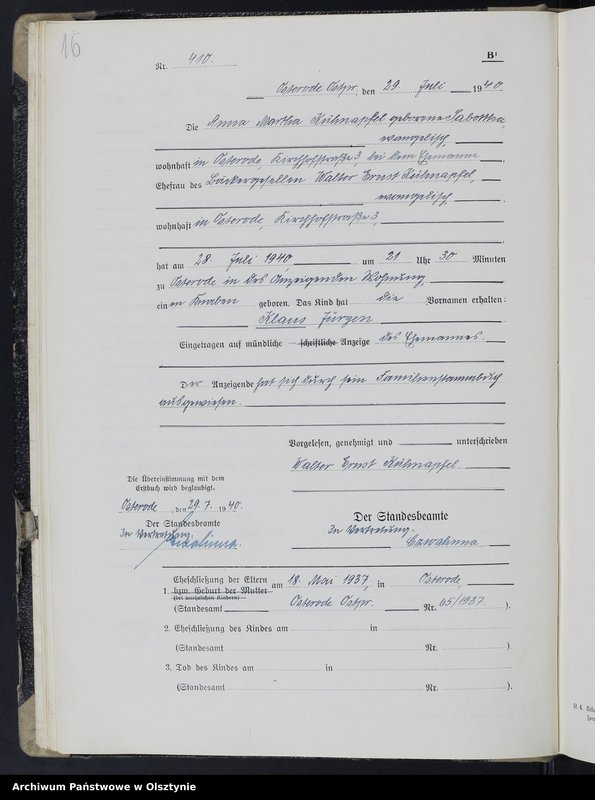 16
B¹
Nr. 410.
Osterode Ostpr., den 29. Juli 1940
Die Anna Martha Kühnapfel geborene
evangelisch,
wohnhaft in Osterode Kirchhofstraße 3, bei dem Ehemann
Ehefrau des Bäckergesellen Walter Ernst Kühnapfel,
evangelisch,
wohnhaft in Osterode, Kirchhofstraße 3,
hat am 28. Juli 1940 um 21 Uhr 30 Minuten
zu Osterode in des Anzeigenden Wohnung,
einen Knaben geboren. Das Kind hat die Vornamen erhalten:
Klaus Jürgen
Eingetragen auf mündliche – schriftliche – Anzeige des Ehemannes.
Der Anzeigende hat sich durch sein Familienstammbuch
ausgewiesen.
Vorgelesen, genehmigt und unterschrieben
Walter Ernst Kühnapfel.
Die Übereinstimmung mit dem
Erstbuch wird beglaubigt.
Osterode, den 29. 7. 1940.
Der Standesbeamte
In Vertretung.
Czwalinna.
Der Standesbeamte
In Vertretung.
Czwalinna
1. Eheschließung der Eltern am 18. Mai 1937, in Osterode
bzw. Geburt der Mutter
(bei unehelichen Kindern)
(Standesamt Osterode Ostpr. Nr. 65/1937 ).
2. Eheschließung des Kindes am in
(Standesamt Nr. ).
3. Tod des Kindes am in
(Standesamt Nr. ).
Archiwum Państwowe w Olsztynie